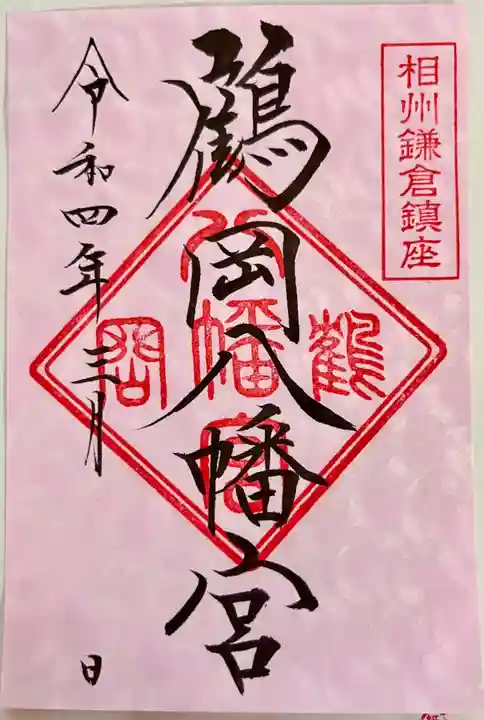 相州鎌倉鎮座
鶴岡八幡宮
鶴
八幡宮
岡
令和四年三月 日